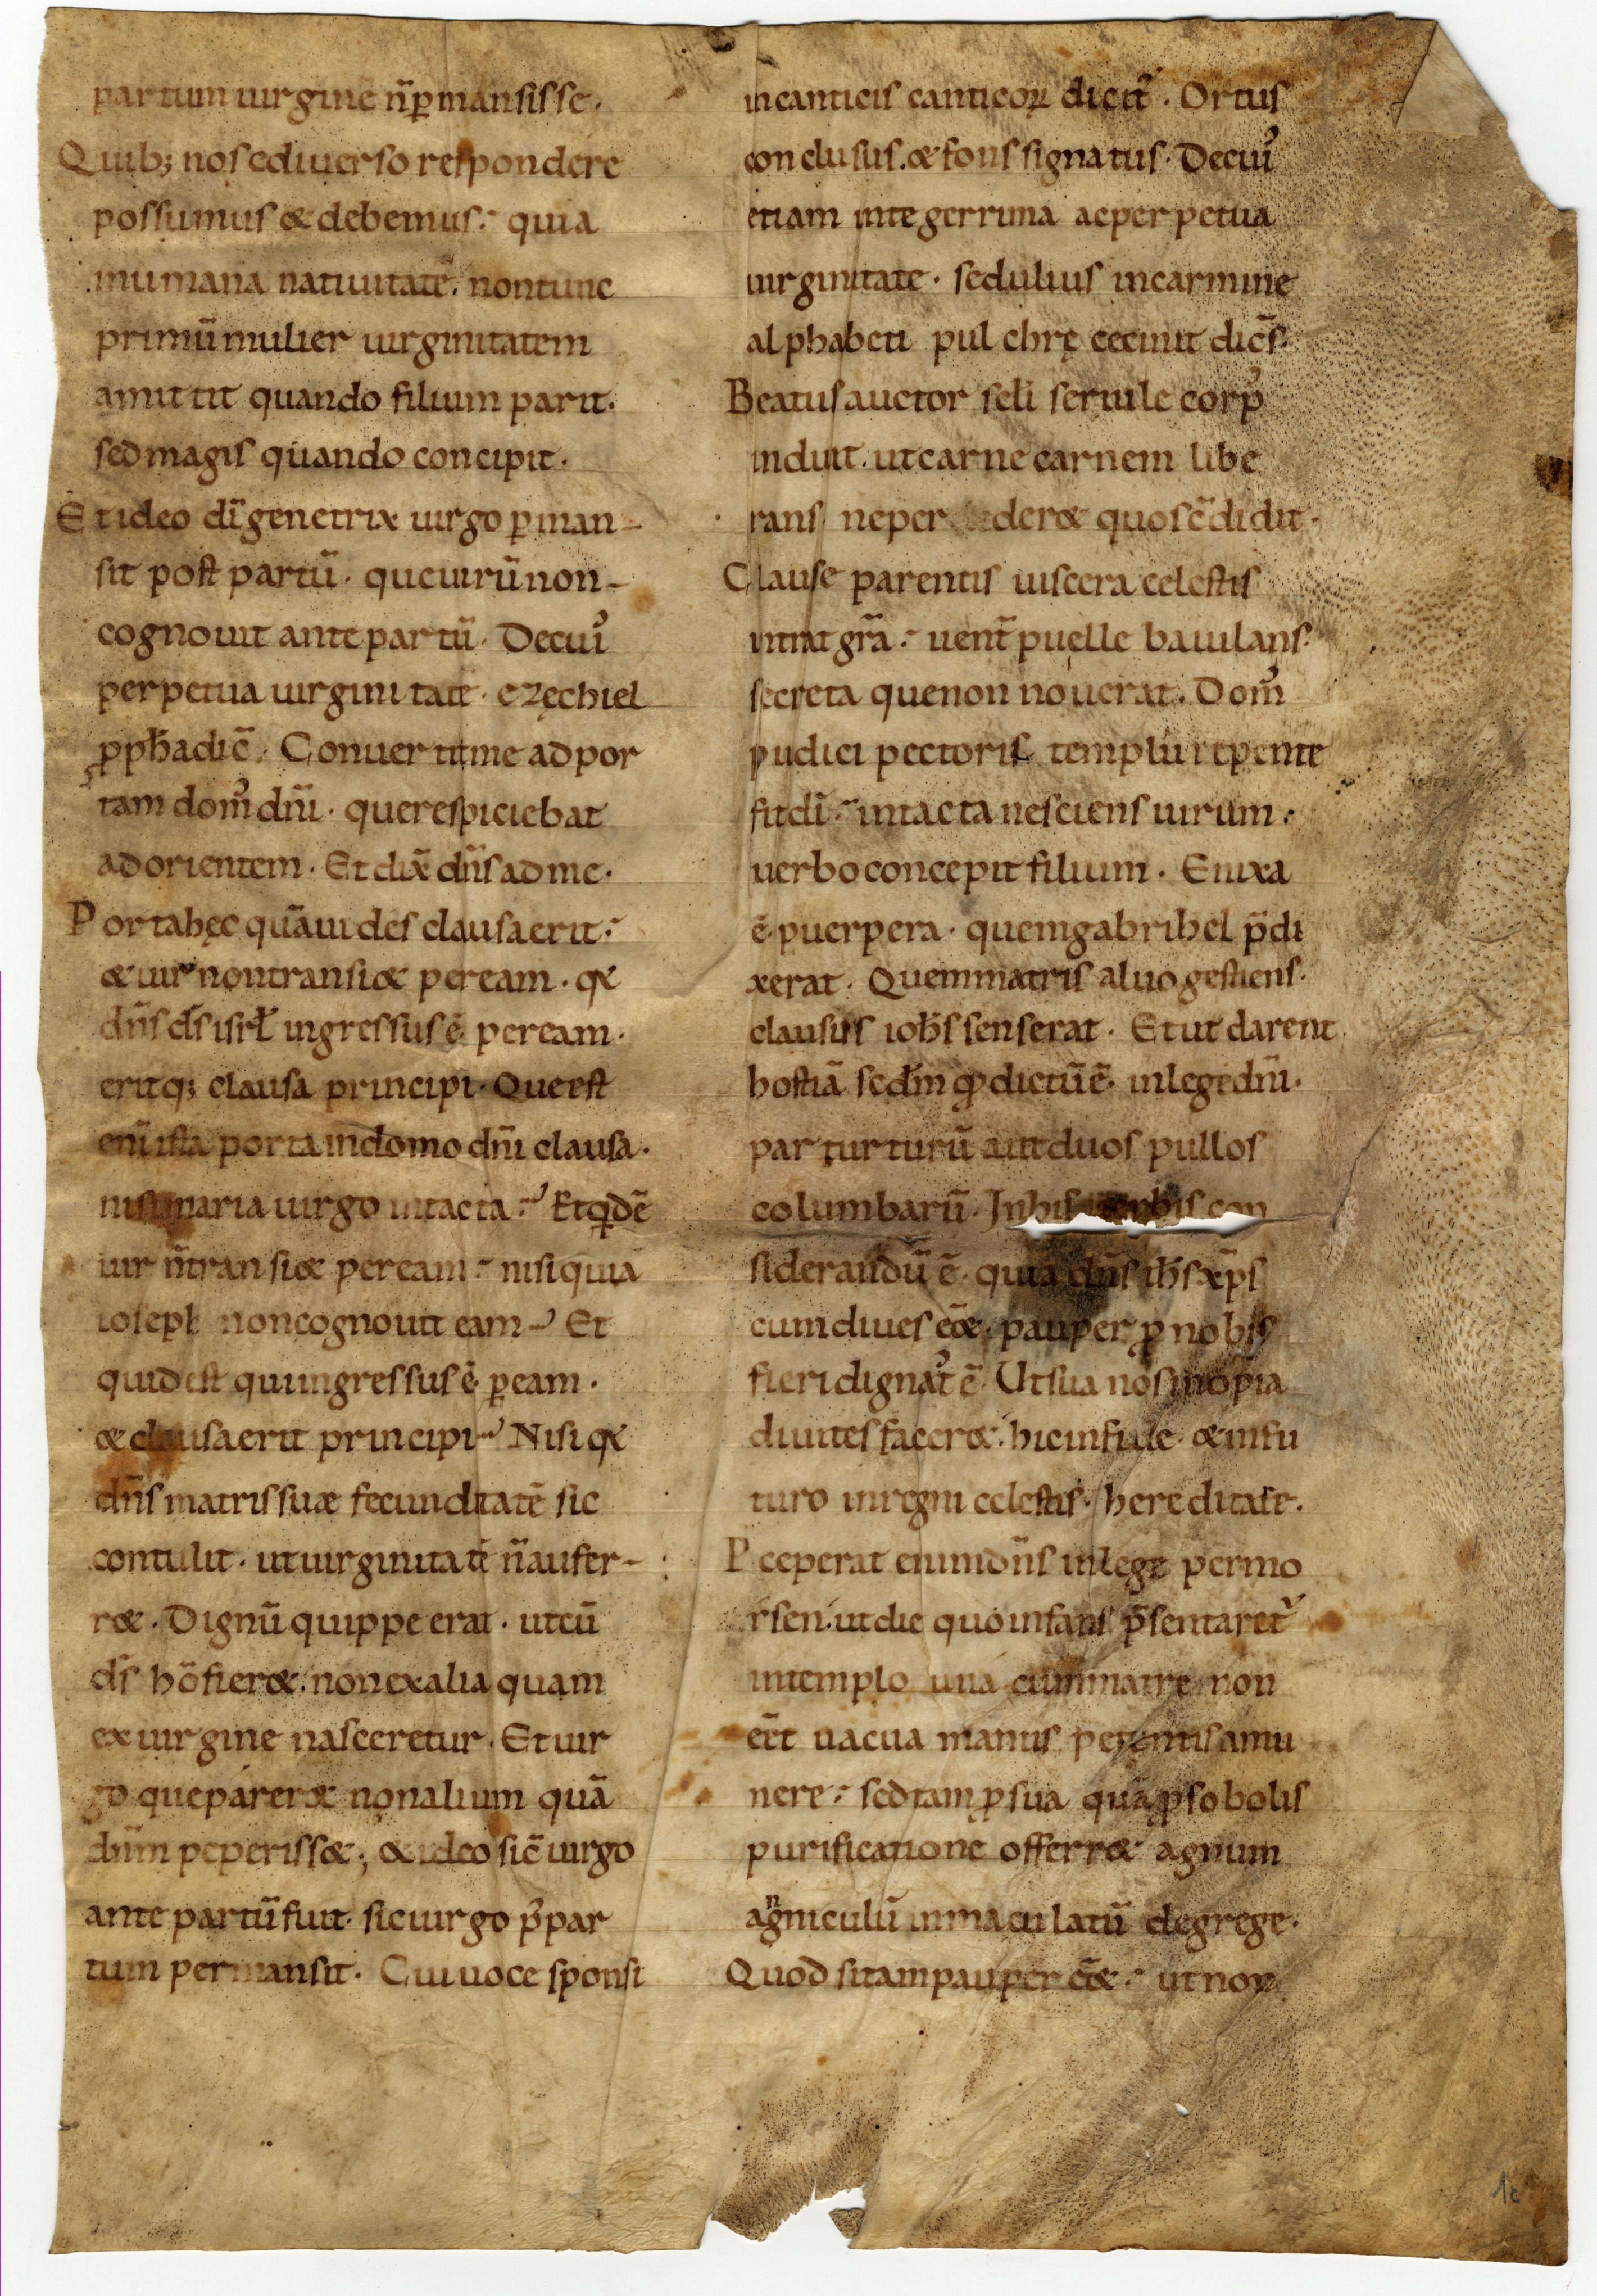 partum uirginē n̄ ꝑmansisse.
Quib; nos ediuerso respondere
possumus & debemus: quia
inumana natiuitatē. non tunc
primū mulier uirginitatem
amittit quando filium parit.
sed magis quando concipit.
Et ideo dī genetrix uirgo ꝑman-
sit post partū. que uirū non-
cognouit ante partū. De cuiꝰ
perpetua uirginitate. ezęchiel
ꝓph̄a dic̄. Conuertit me ad por
tam domꝰ dn̄i. que respiciebat
ad orientem. Et dix̄ dn̄s ad me.
Porta hęc quā uides clausa erit:
& uir non transi& per eam. qͥa
dn̄s d̄s isrl̄ ingressus ē per eam.
eritq; clausa principi. Que est
eni ista porta in domo dn̄i clausa.
nisi maria uirgo intacta? Et qͥdē
uir n̄ transi& per eam: nisi quia
ioseph non cognouit eam? Et
quid est qui ingressus ē ꝑ eam.
& clausa erit principi? Nisi qͥa
dn̄s matris suæ fecunditatē sic
contulit. ut uirginitatē n̄ aufer-
r&. Dignū quippe erat. ut cū
d̄s hō fier&. non ex alia quam
ex uirgine nasceretur. Et uir
go que parer& non alium quā
dn̄m peperiss&; & ideo sic̄ uirgo
ante partū fuit. sic uirgo p̄ par
tum permansit. Cui uoce sponsi
in canticis canticoꝝ dicit̄. Ortus
conclusus. & fons signatus. De cuiꝰ
etiam integerrima ac perpetua
uirginitate. sedulius in carmine
alphabeti pulchrę cecinit dic̄s.
Beatus auctor sc̄li seruile corpꝰ
induit. ut carne carnem libe
rans ne per der& quos c̄didit.
Clause parentis uiscera celestis
intrat gr̄a: uent̄ puelle baiulans.
secreta que non nouerat. Domꝰ
pudici pectoris templū repente
fit dī: intacta nesciens uirum:
uerbo concepit filium. Enixa
ē puerpera. quem gabrihel p̄di
xerat. Quem matris aluo gestiens.
clausus ioh̄s senserat. Et ut darent
hostiā sedm̄ qđ dictū ē. in lege dn̄i.
par turturū aut duos pullos
columbarū. In his uerbis con
siderandū ē. quia dn̄s ih̄s xp̄s
cum diues ēē&. pauper ꝓ nobis
fieri dignatꝰ ē. Ut sua nos inopia
diuites facer&. hic in fide. & in fu
turo in regni celestis. hereditate.
Pceperat enim dn̄s in lege per mo
ysen. ut die quo infans p̄sentaret̄
in templo una cum matre non
eēt uacua manus petentis a mu
nere: sed tam ꝓ sua quā ꝓ sobolis
purificatione offerr& agnum
agniculū inmaculatū de grege.
Quod si tam pauper ēē&: ut non